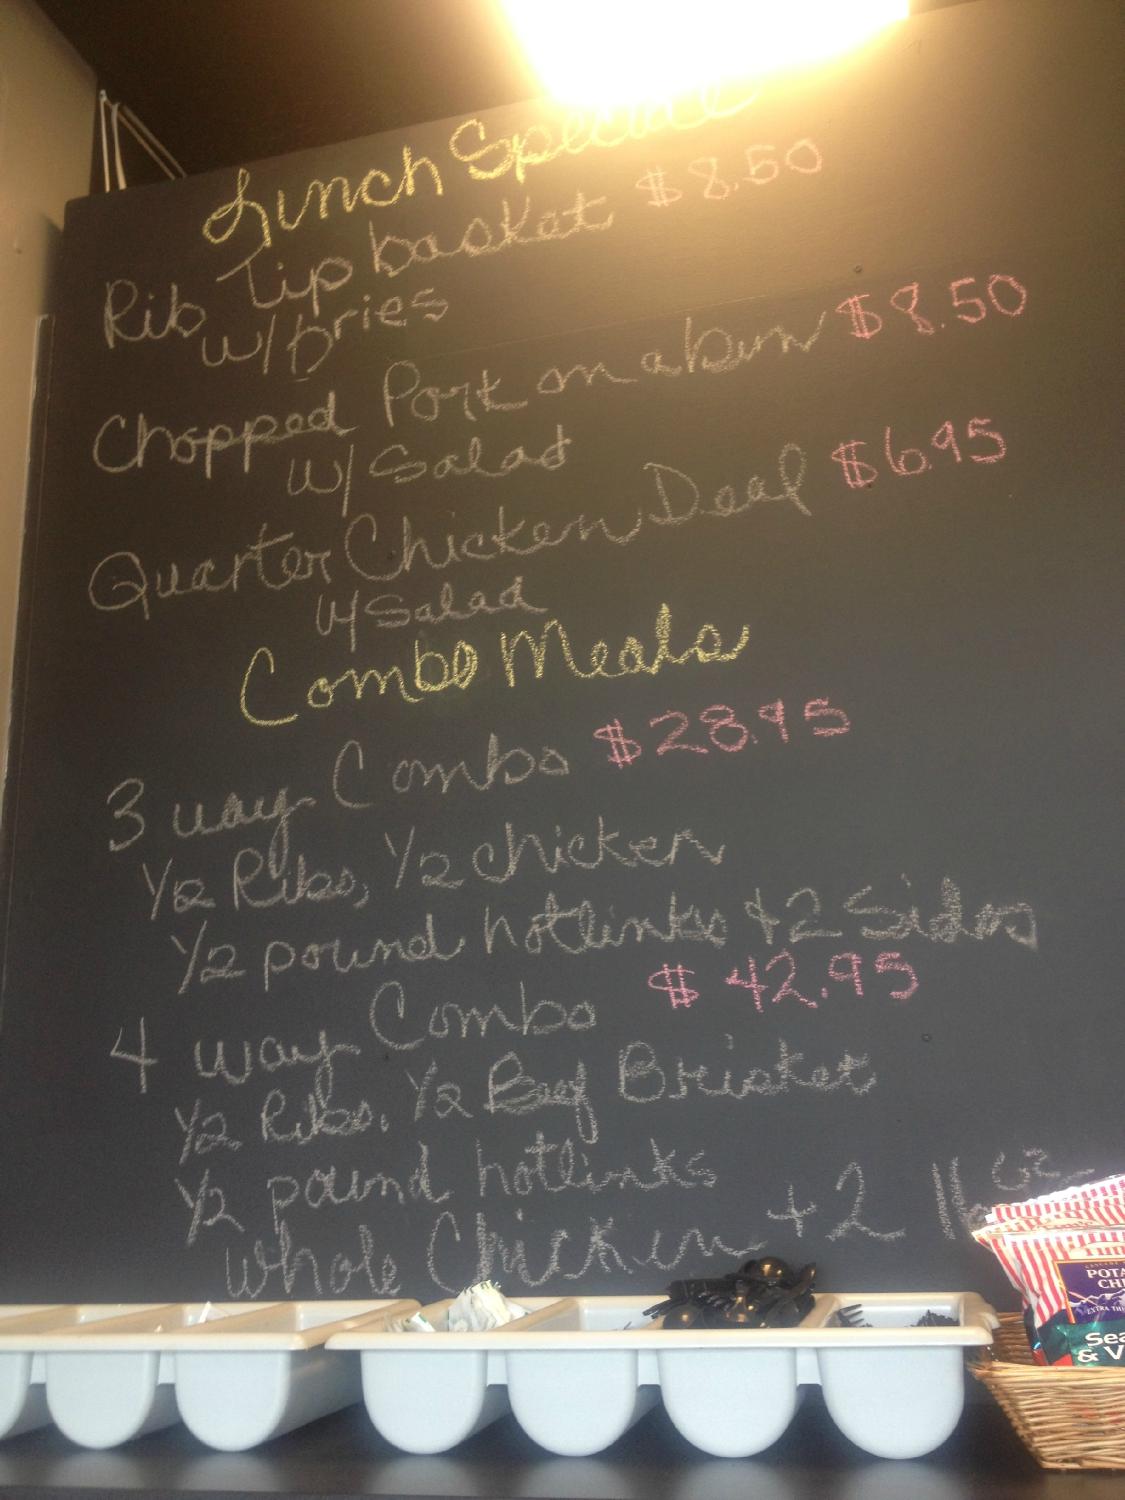 Lunch Special
Rib Tip basket $8.50
w/ Fries
Chopped Pork on a bun $8.50
w/ Salad
Quarter Chicken Deal $6.95
w/ Salad
Combo Meals
3 way Combo $28.95
1/2 Ribs, 1/2 chicken
1/2 pound hotlinks + 2 Sides
4 way Combo $42.95
1/2 Ribs, 1/2 Beef Brisket
1/2 pound hotlinks
whole Chicken + 2
Tim's
CASCADE
POTA
CHI
EXTRA TH
Sea
& V